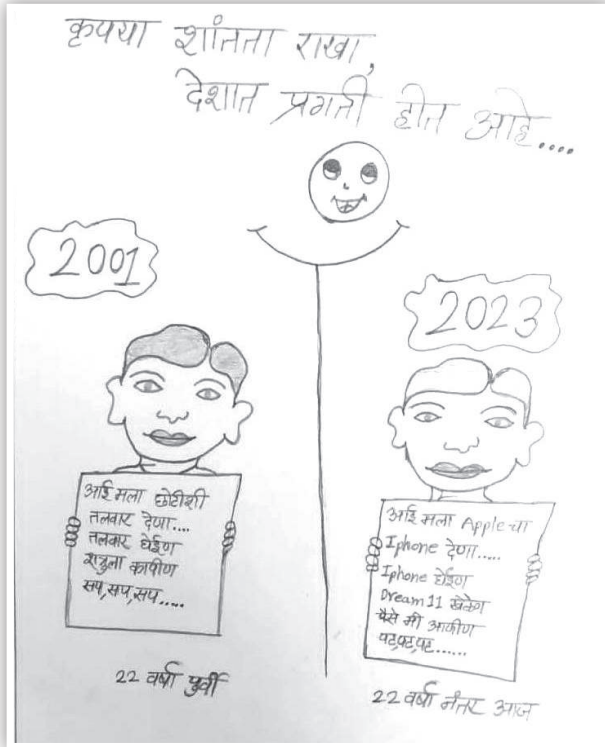 कृपया शांतता राखा,
देशात प्रगती होत आहे....
2001
आई मला छोटीशी
तलवार देणा....
तलवार घेईण
शत्रुला कापीण
सप,सप,सप.....
22 वर्षा पुर्वी
2023
आई मला Apple चा
Iphone देणा.....
Iphone घेईण
Dream 11 खेळेण
पैसे मी आणीण
पट,पट,पट......
22 वर्षा नंतर आज